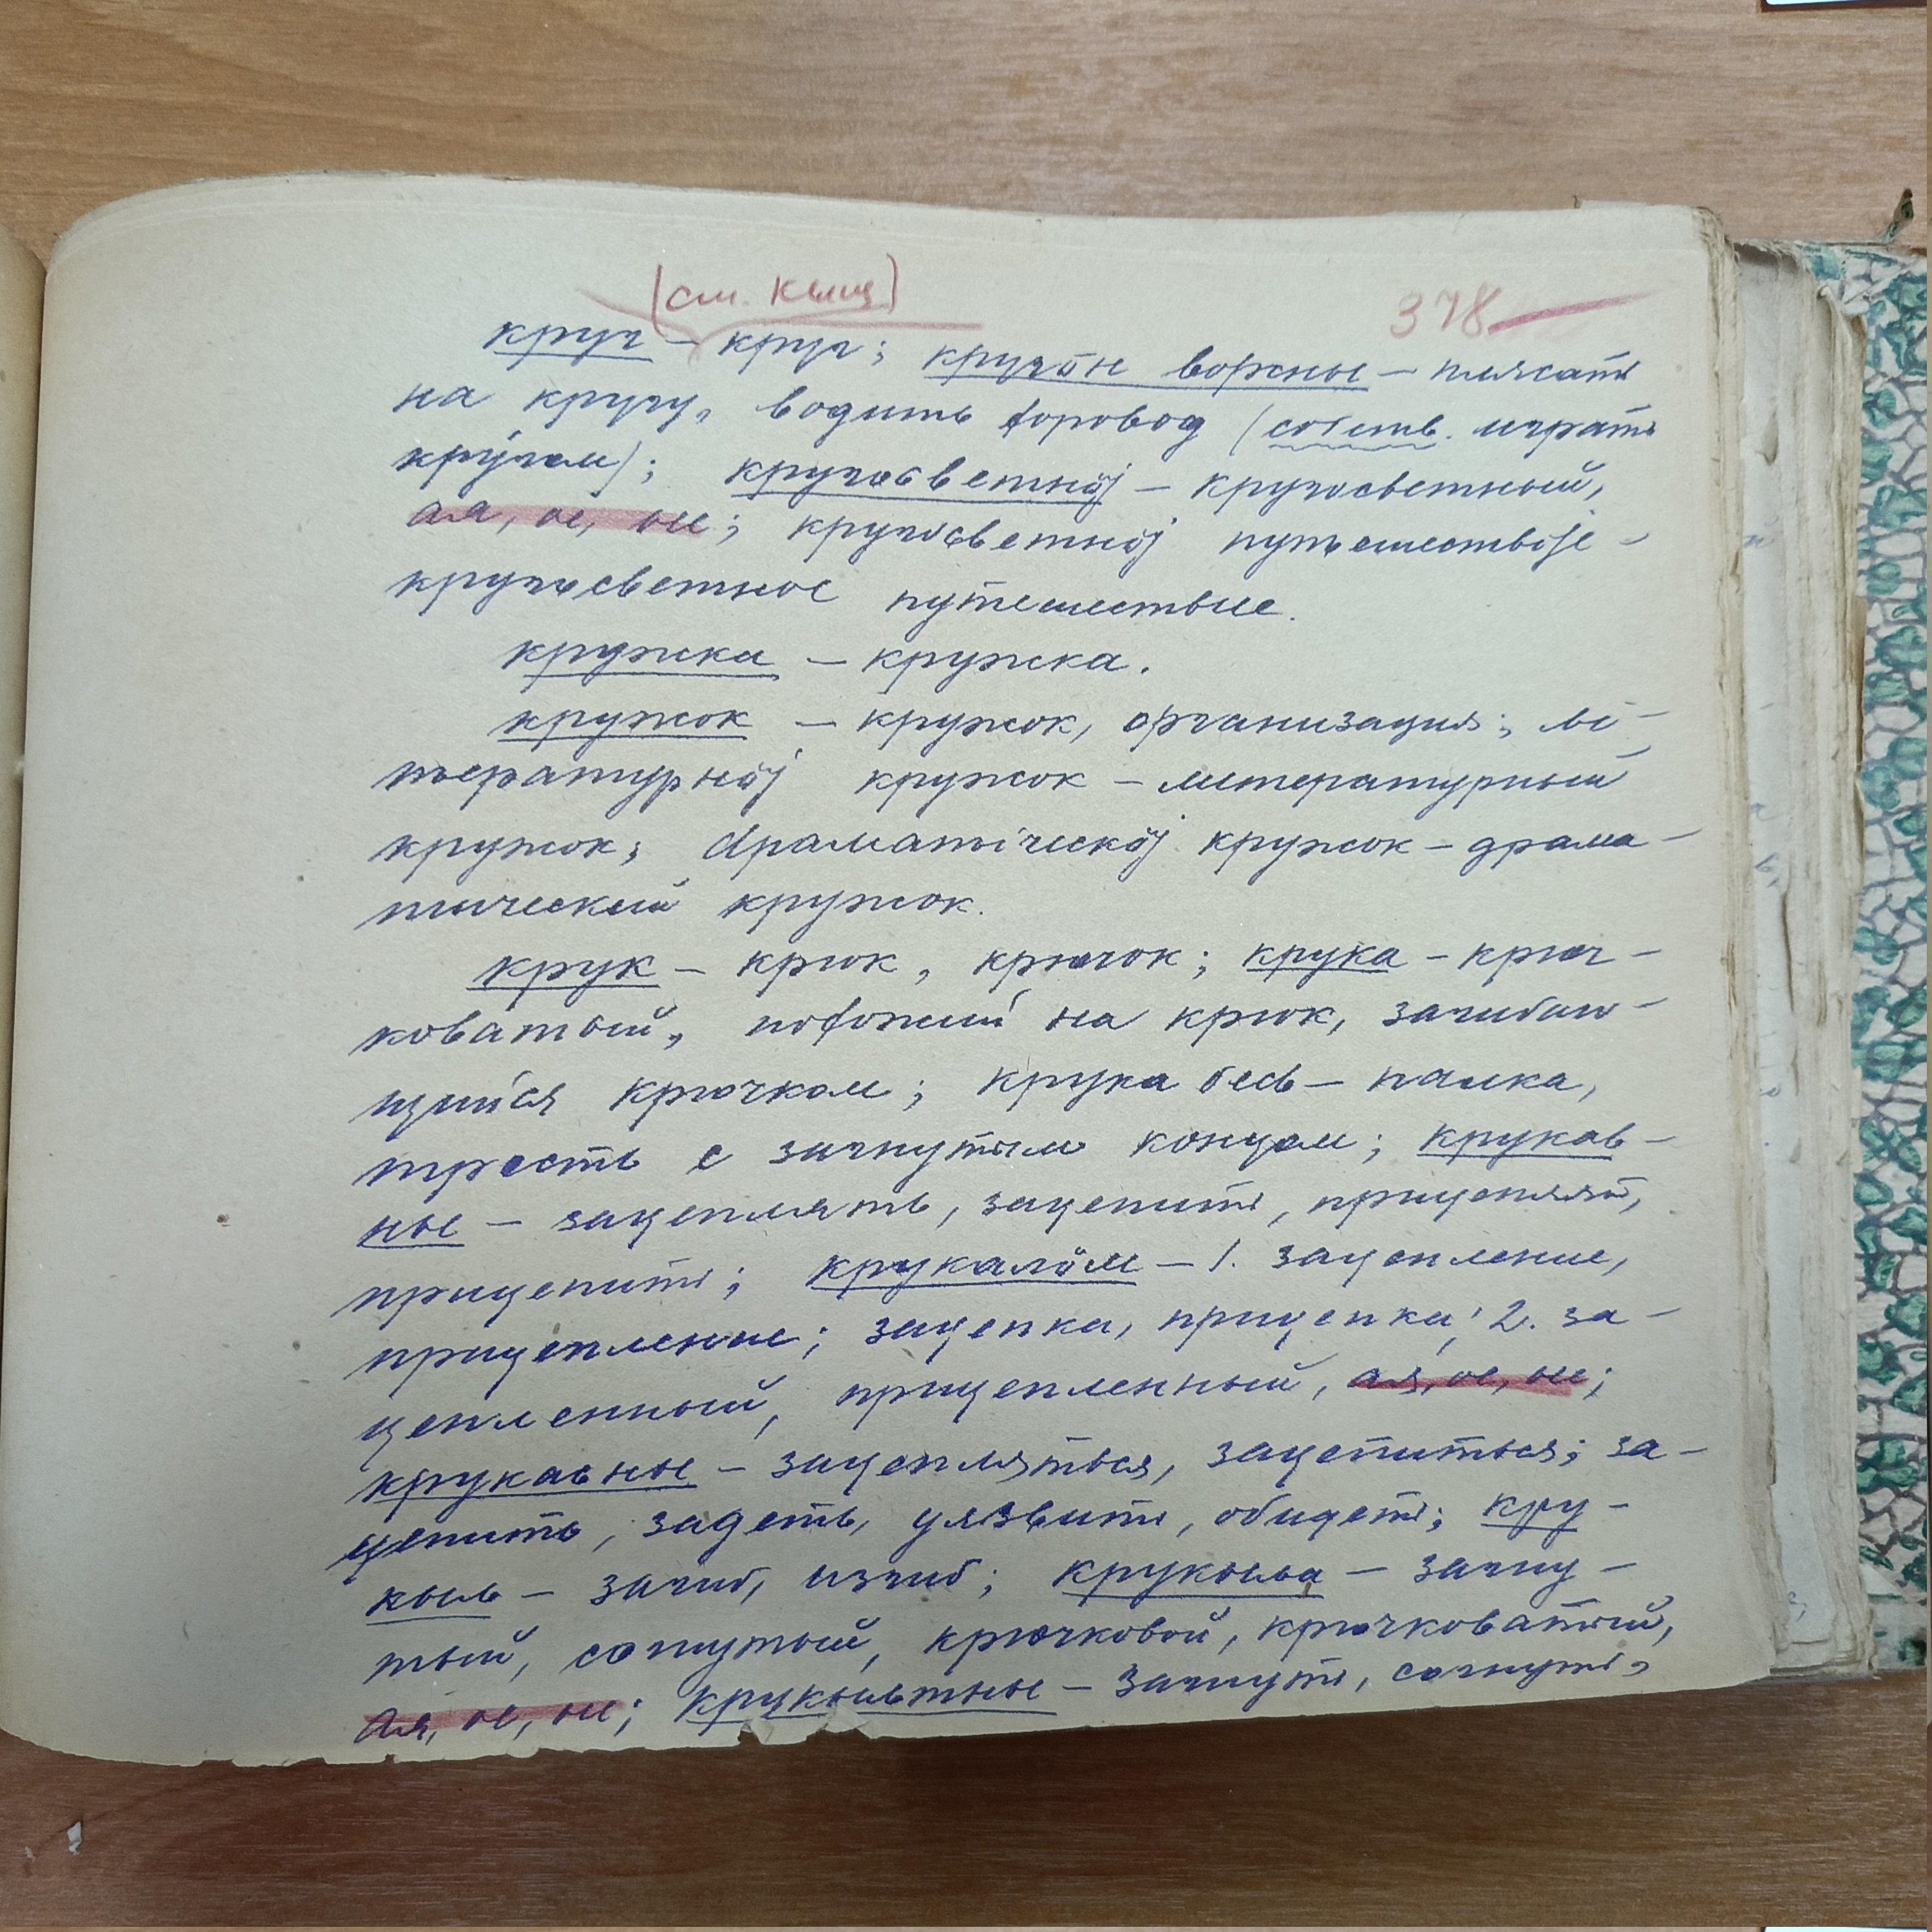 (см. кыщ)
378
круг – круг; кругöн ворсны – плясать
на кругу, водить хоровод (собств. играть
кру́гом); кругосветнöj – кругосветный,
ая, ое, ые; кругосветнöj путьешествоjе –
кругосветное путешествие.
кружка – кружка.
кружок – кружок, организация; лі-
тьературнöj кружок – литературный
кружок; драматіческöj кружок – драма-
тический кружок.
крук – крюк, крючок; крука – крюч-
коватый, похожий на крюк, загибаю-
щийся крючком; крука бедь – палка,
трость с загнутым концом; крукав-
ны – зацеплять, зацепить, прицеплять,
прицепить; крукалöм – 1. зацепление,
прицепление; зацепка, прицепка; 2. за-
цепленный, прицепленный, ая, ое, ые;
крукасьны – зацепляться, зацепиться; за-
цепить, задеть, уязвить, обидеть; кру-
кыль – загиб, изгиб; крукыльа – загну-
тый, согнутый, крючковой, крючковатый,
ая, ое, ые; крукыльтны – загнуть, согнуть,